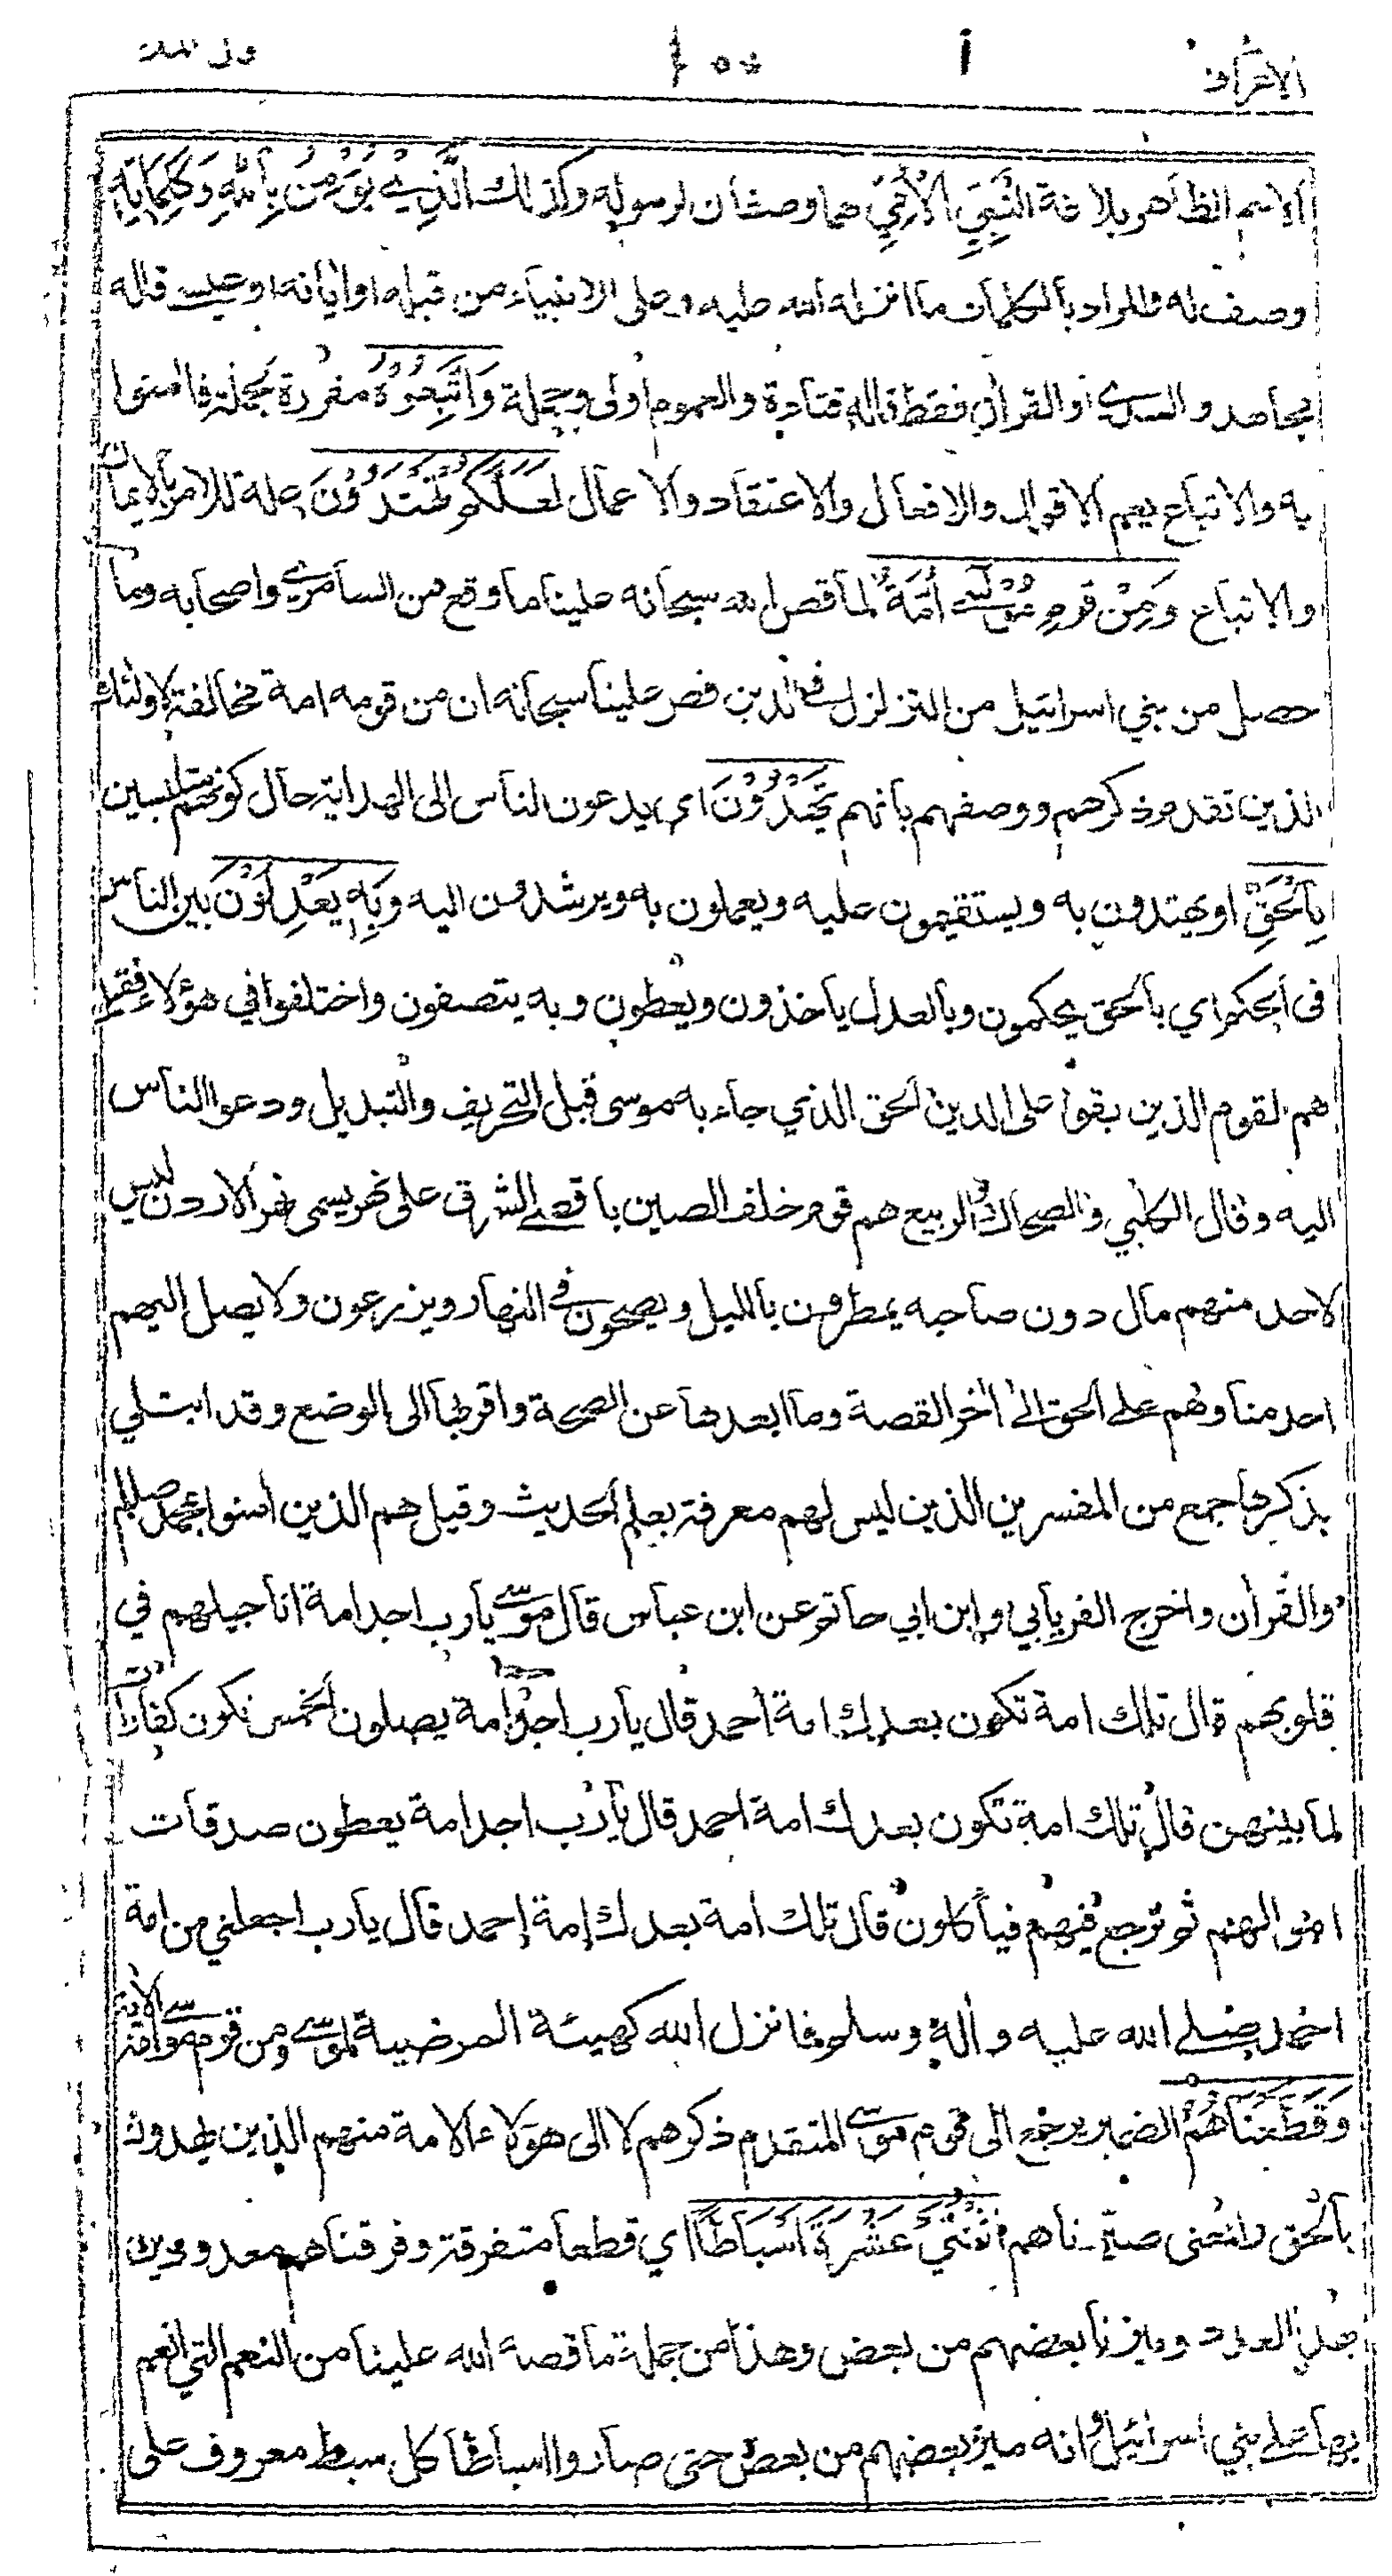 الاعراف
قال الملأ
الاسم الظاهر بلاغة النَّبِيِّ الْأُمِّيِّ هما وصفان لرسوله وكذلك الَّذِي يُؤْمِنُ بِاللهِ وَكَلِمَاتِهِ
وصف له والمراد بالكلمات ما انزله الله عليه وعلى الانبياء من قبله او اٰياته او عيسى قاله
مجاهد والسدي او القراٰن فقط قاله قتادة والعموم اولى وجملة وَاتَّبِعُوْهُ مقررة لجملة فاٰمنوا
به والاتباع يعم الاقوال والافعال والاعتقاد والاعمال لَعَلَّكُمْ تَهْتَدُوْنَ علة للامر بالايمان
والاتباع وَمِنْ قَوْمِ مُوْسٰى أُمَّةٌ لما قص الله سبحانه علينا ما وقع من السامري واصحابه وما
حصل من بني اسرائيل من التزلزل في الدين قص علينا سبحانه ان من قومه امة مخالفة لاولئك
الذين تقدم ذكرهم ووصفهم بانهم يَهْدُوْنَ اي يدعون الناس الى الهداية حال كونهم متلبسين
بِالْحَقِّ او يهتدون به ويستقيمون عليه ويعملون به ويرشدون اليه وَبِهٖ يَعْدِلُوْنَ بين الناس
في الحكم اي بالحق يحكمون وبالعدل ياخذون ويعطون وبه يتصفون واختلفوا في هؤلاء فقيل
هم القوم الذين بقوا على الدين الحق الذي جاء به موسى قبل التحريف والتبديل ودعوا الناس
اليه وقال الكلبي والضحاك والربيع هم قوم خلف الصين باقصى الشرق على نهر يسمى نهر الاردن ليس
لاحد منهم مال دون صاحبه يمطرون بالليل ويصحون في النهار ويزرعون ولا يصل اليهم
احد منا وهم على الحق الى اٰخر القصة وما ابعدها عن الصحة واقربها الى الوضع وقد ابتلي
بذكرها جمع من المفسرين الذين ليس لهم معرفة بعلم الحديث وقيل هم الذين اٰمنوا بمحمد صللم
والقراٰن واخرج الفريابي وابن ابي حاتم عن ابن عباس قال موسى يارب اجد امة اناجيلهم في
قلوبهم قال تلك امة تكون بعدك امة احمد قال يارب اجد امة يصلون الخمس تكون كفارات
لما بينهن قال تلك امة تكون بعدك امة احمد قال يارب اجد امة يعطون صدقات
اموالهم ثم ترجع فيهم فياكلون قال تلك امة بعدك امة احمد قال يارب اجعلني من امة
احمد صلى الله عليه واٰله وسلم فانزل الله كهيئة المرضية لموسى ومن قوم موسى امة الاٰية
وَقَطَّعْنَاهُمُ الضمير يرجع الى قوم موسى المتقدم ذكرهم لا الى هؤلاء الامة منهم الذين يهدون
بالحق والمعنى صيرناهم اثْنَتَيْ عَشْرَةَ اَسْبَاطًا اي قطعا متفرقة وفرقناهم معدودين
بهذا العدد وميزنا بعضهم من بعض وهذا من جملة ما قصه الله علينا من النعم التي انعم
بها على بني اسرائيل وانه ميز بعضهم من بعض حتى صاروا اسباطا كل سبط معروف على